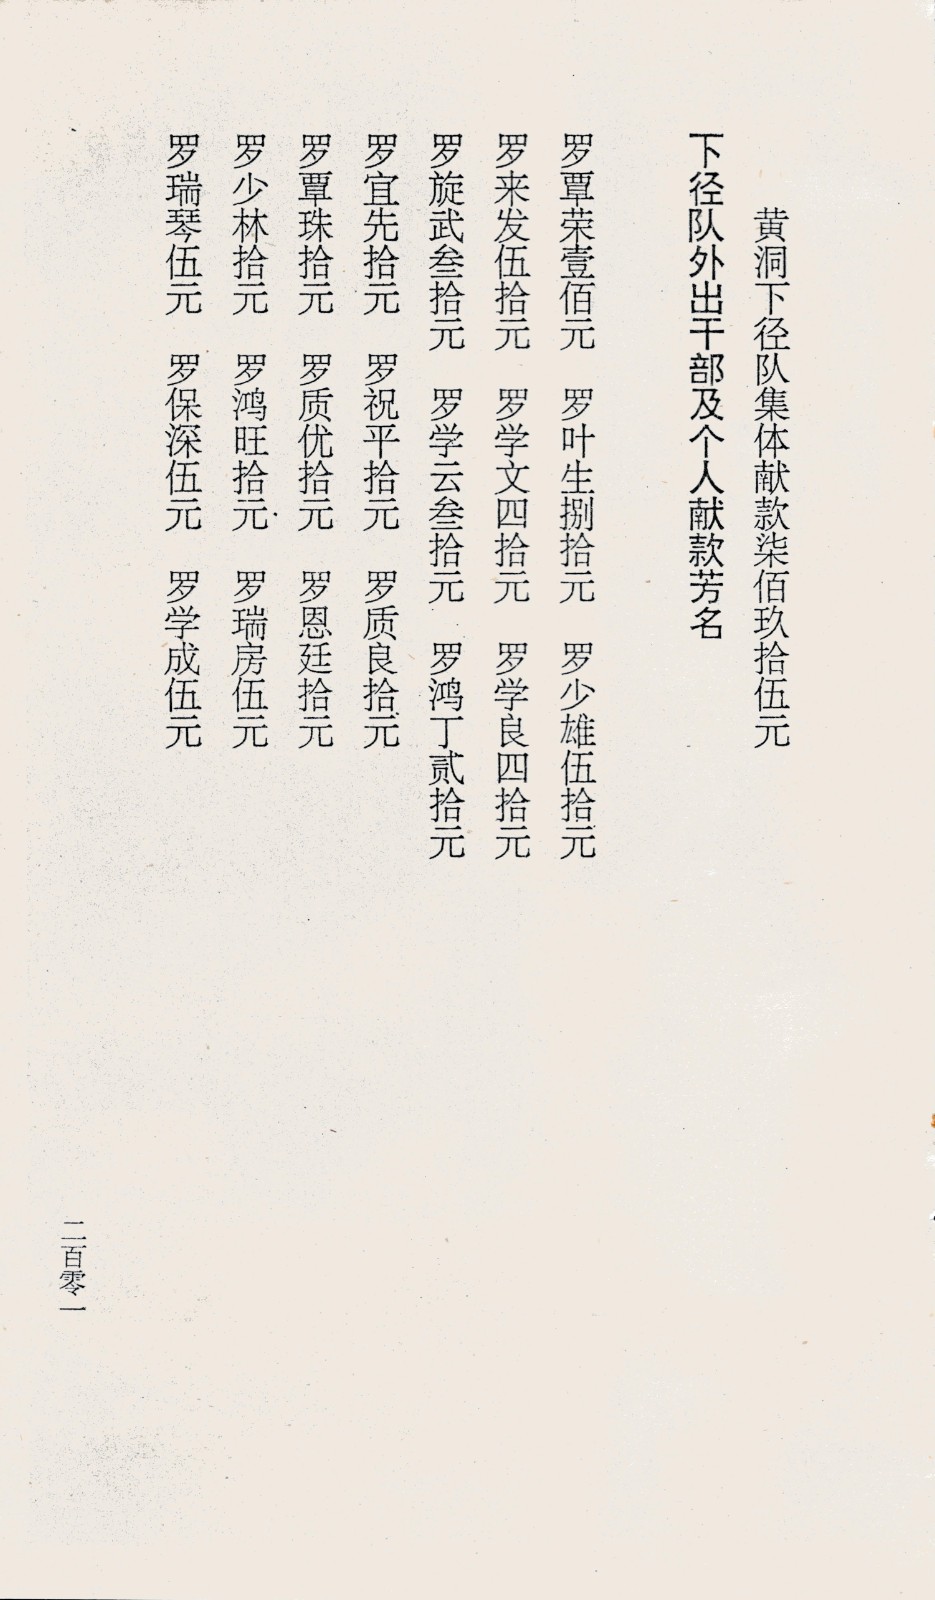 黄洞下径队集体献款柒佰玖拾伍元
下径队外出干部及个人献款芳名
罗覃荣壹佰元 罗叶生捌拾元 罗少雄伍拾元
罗来发伍拾元 罗学文四拾元 罗学良四拾元
罗旋武叁拾元 罗学云叁拾元 罗鸿丁贰拾元
罗宜先拾元 罗祝平拾元 罗质良拾元
罗覃珠拾元 罗质优拾元 罗恩廷拾元
罗少林拾元 罗鸿旺拾元 罗瑞房伍元
罗瑞琴伍元 罗保深伍元 罗学成伍元
二百零一